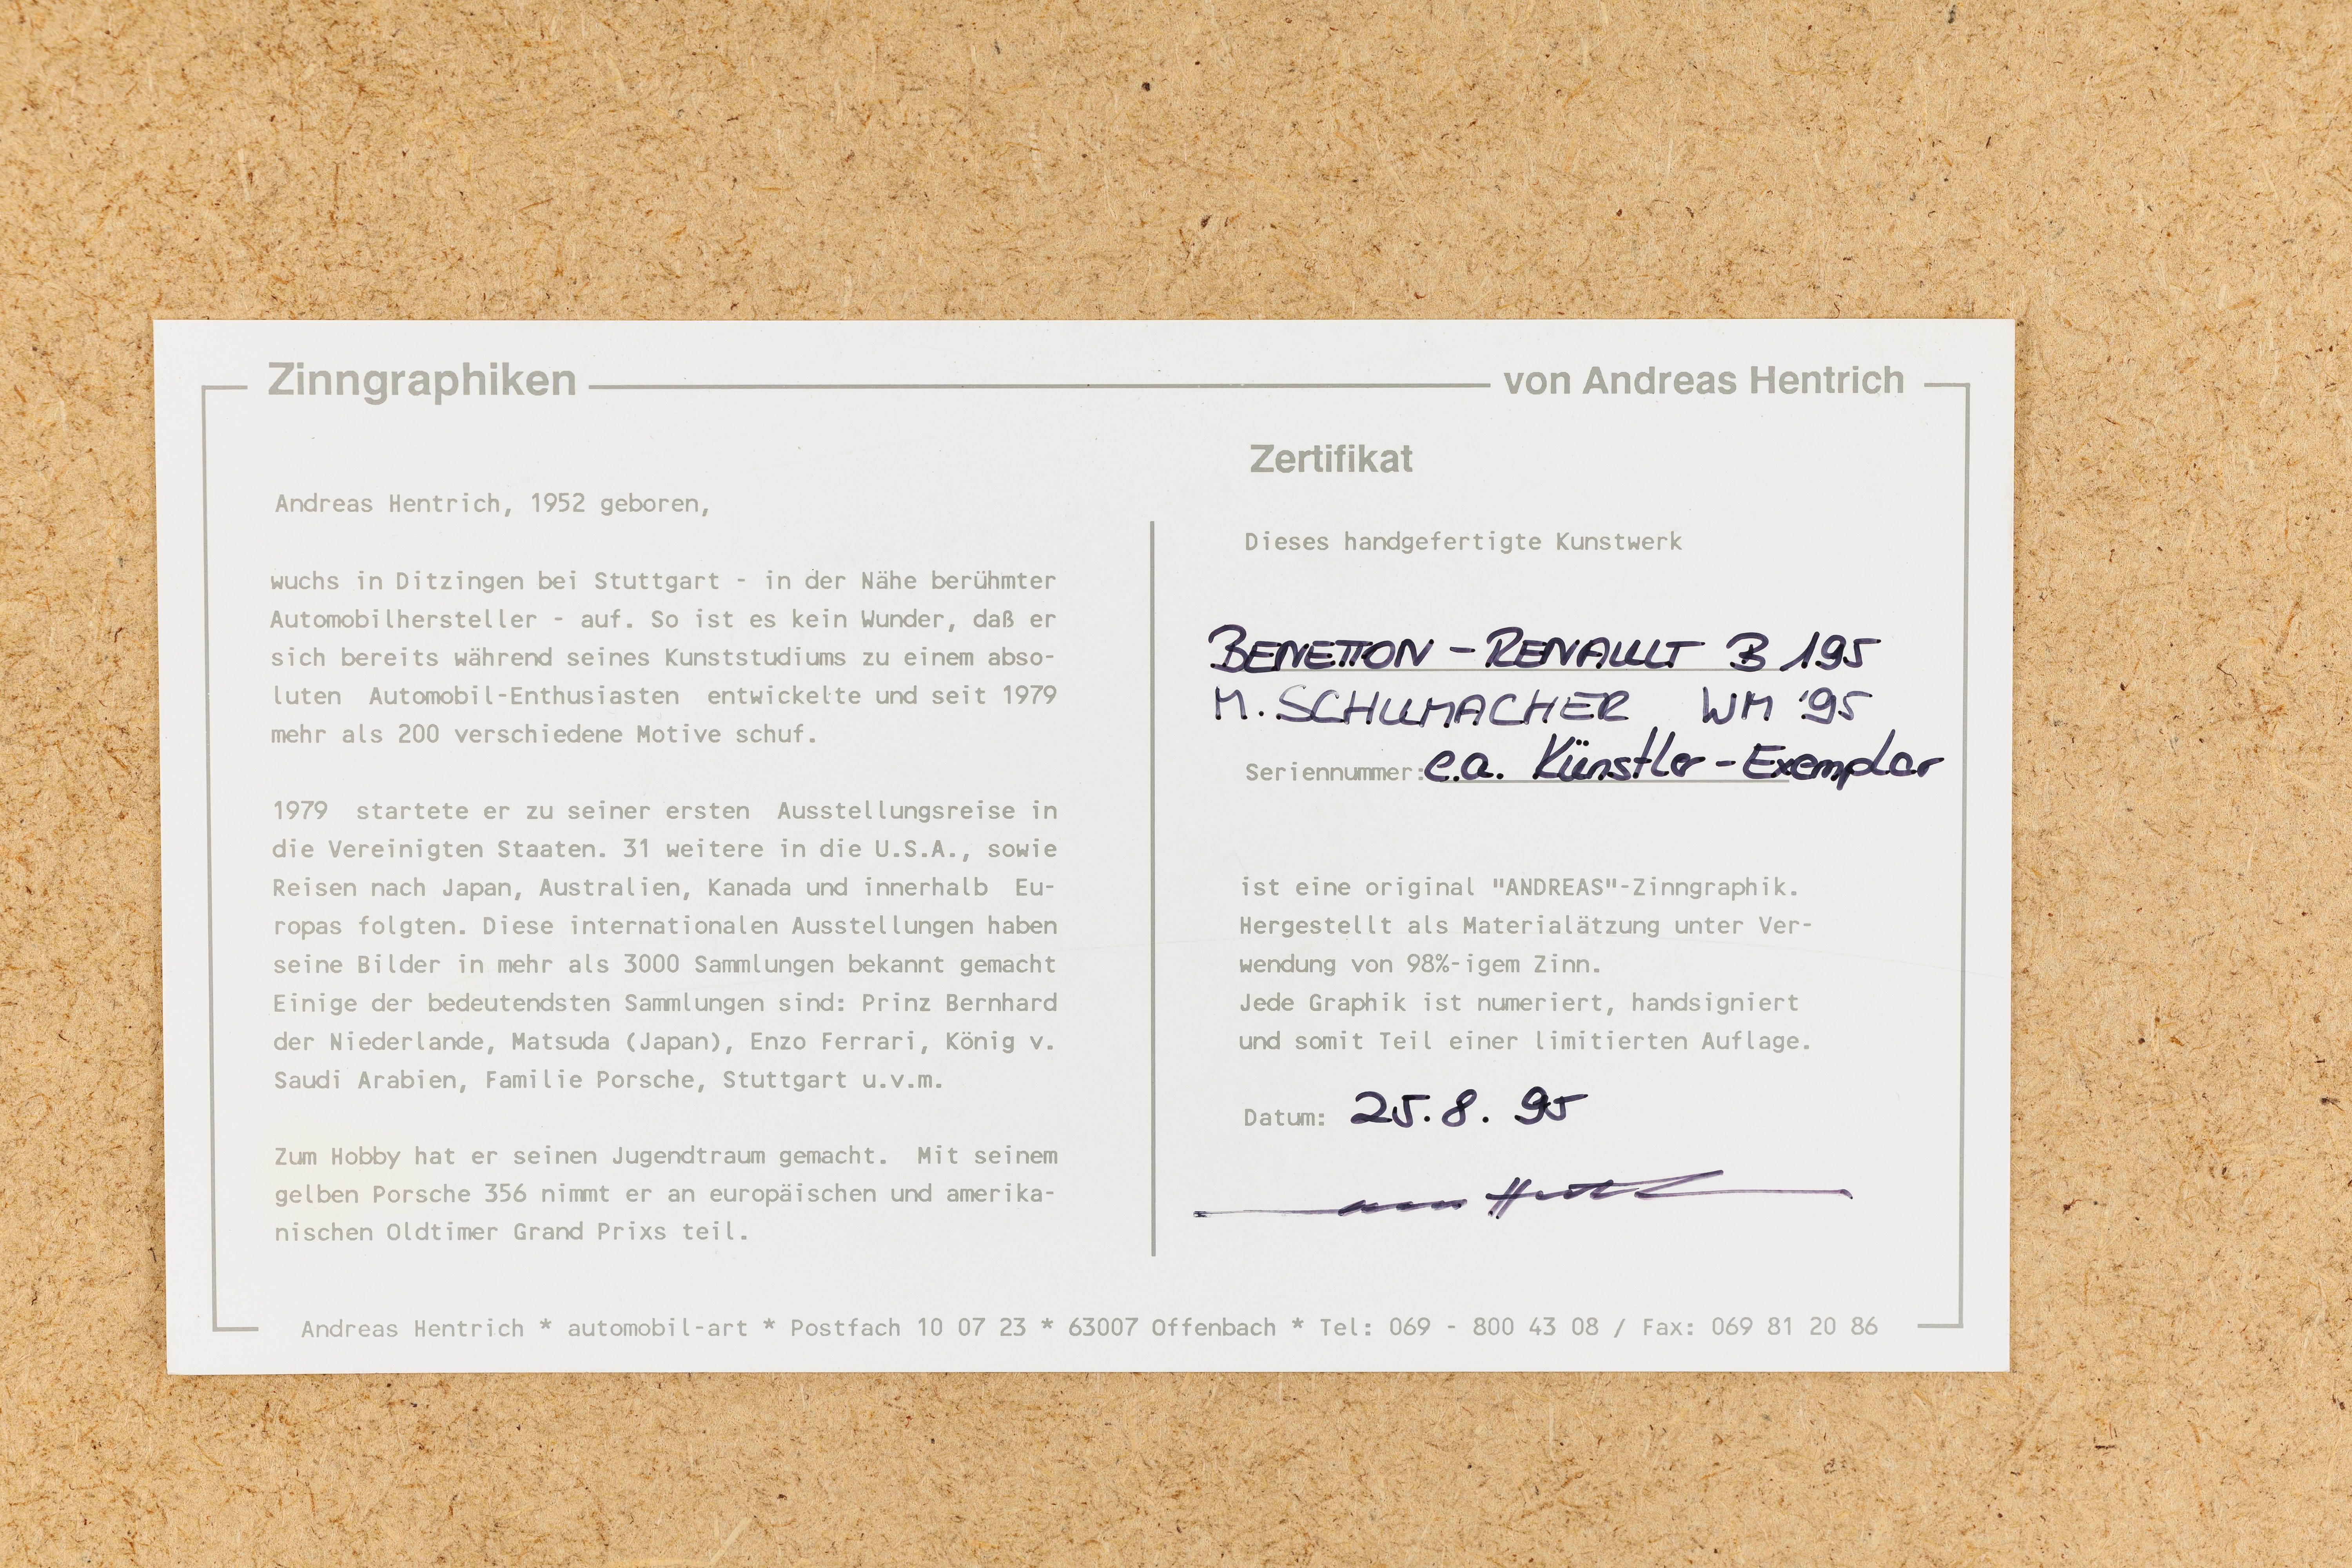 Zinngraphiken von Andreas Hentrich
Andreas Hentrich, 1952 geboren,
wuchs in Ditzingen bei Stuttgart - in der Nähe berühmter
Automobilhersteller - auf. So ist es kein Wunder, daß er
sich bereits während seines Kunststudiums zu einem abso-
luten Automobil-Enthusiasten entwickelte und seit 1979
mehr als 200 verschiedene Motive schuf.
1979 startete er zu seiner ersten Ausstellungsreise in
die Vereinigten Staaten. 31 weitere in die U.S.A., sowie
Reisen nach Japan, Australien, Kanada und innerhalb Eu-
ropas folgten. Diese internationalen Ausstellungen haben
seine Bilder in mehr als 3000 Sammlungen bekannt gemacht
Einige der bedeutendsten Sammlungen sind: Prinz Bernhard
der Niederlande, Matsuda (Japan), Enzo Ferrari, König v.
Saudi Arabien, Familie Porsche, Stuttgart u.v.m.
Zum Hobby hat er seinen Jugendtraum gemacht. Mit seinem
gelben Porsche 356 nimmt er an europäischen und amerika-
nischen Oldtimer Grand Prixs teil.
Zertifikat
Dieses handgefertigte Kunstwerk
BENETTON - RENAULT B 195
M. SCHUMACHER WM '95
Seriennummer: e.a. Künstler-Exemplar
ist eine original "ANDREAS"-Zinngraphik.
Hergestellt als Materialätzung unter Ver-
wendung von 98%-igem Zinn.
Jede Graphik ist numeriert, handsigniert
und somit Teil einer limitierten Auflage.
Datum: 25.8.95
Andreas Hentrich * automobil-art * Postfach 10 07 23 * 63007 Offenbach * Tel: 069 - 800 43 08 / Fax: 069 81 20 86